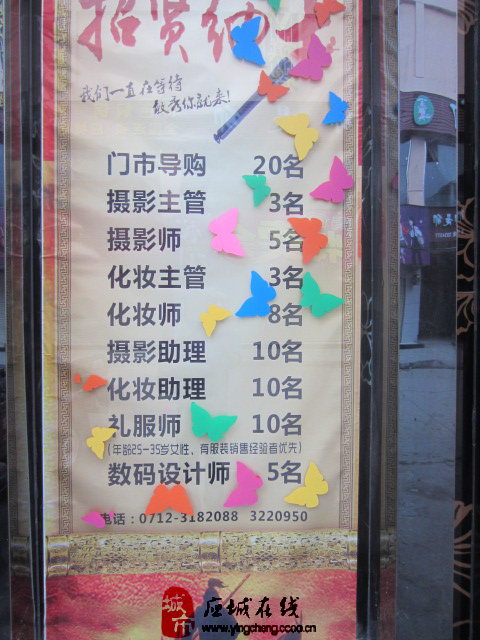 招贤纳士
我们一直在等待
敢秀你就来!
门市导购 20名
摄影主管 3名
摄影师 5名
化妆主管 3名
化妆师 8名
摄影助理 10名
化妆助理 10名
礼服师 10名
(年龄25-35岁女性、有服装销售经验者优先)
数码设计师 5名
电话:0712-3182088 3220950
城市 应城在线
www.yingcheng.ccoo.cn